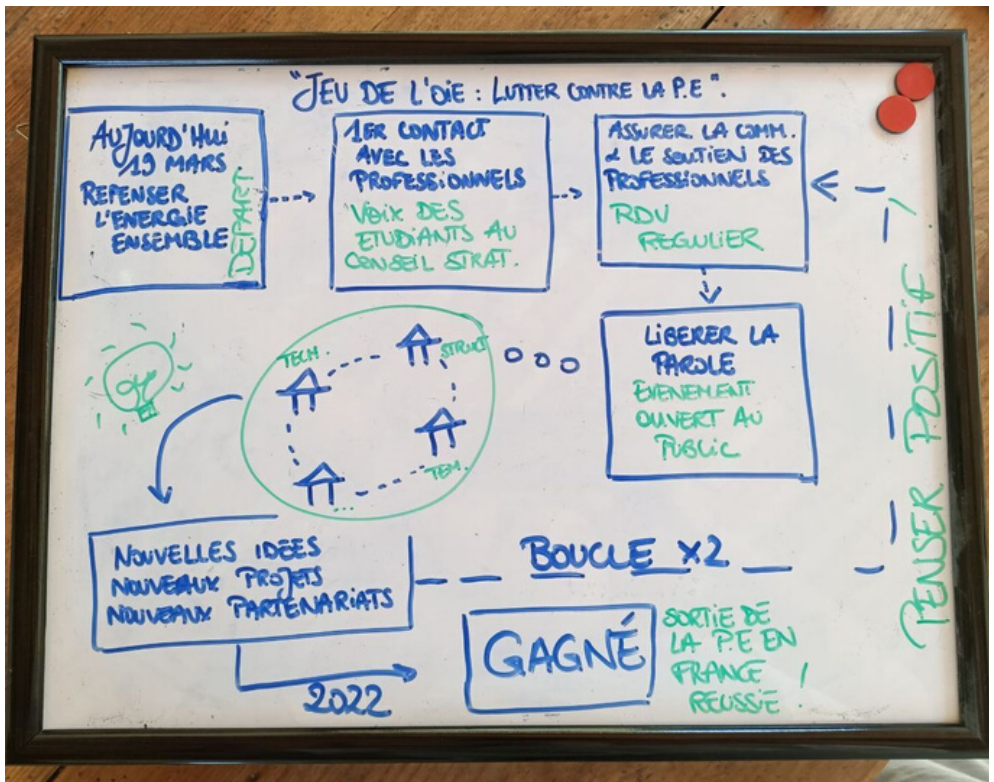 "JEU DE L'OIE : LUTTER CONTRE LA P.E".
AUJOURD'HUI
19 MARS
REPENSER
L'ENERGIE
ENSEMBLE
DEPART
1ER CONTACT
AVEC LES
PROFESSIONNELS
VOIX DES
ETUDIANTS AU
CONSEIL STRAT.
ASSURER LA COMM.
& LE SOUTIEN DES
PROFESSIONNELS
RDV
REGULIER
LIBERER LA
PAROLE
EVENEMENT
OUVERT AU
PUBLIC
TECH.
STRUCT
TEM.
...
NOUVELLES IDEES
NOUVEAUX PROJETS
NOUVEAUX PARTENARIATS
BOUCLE X2
PENSER POSITIF!
2022
GAGNÉ
SORTIE DE
LA P.E EN
FRANCE
REUSSIE !